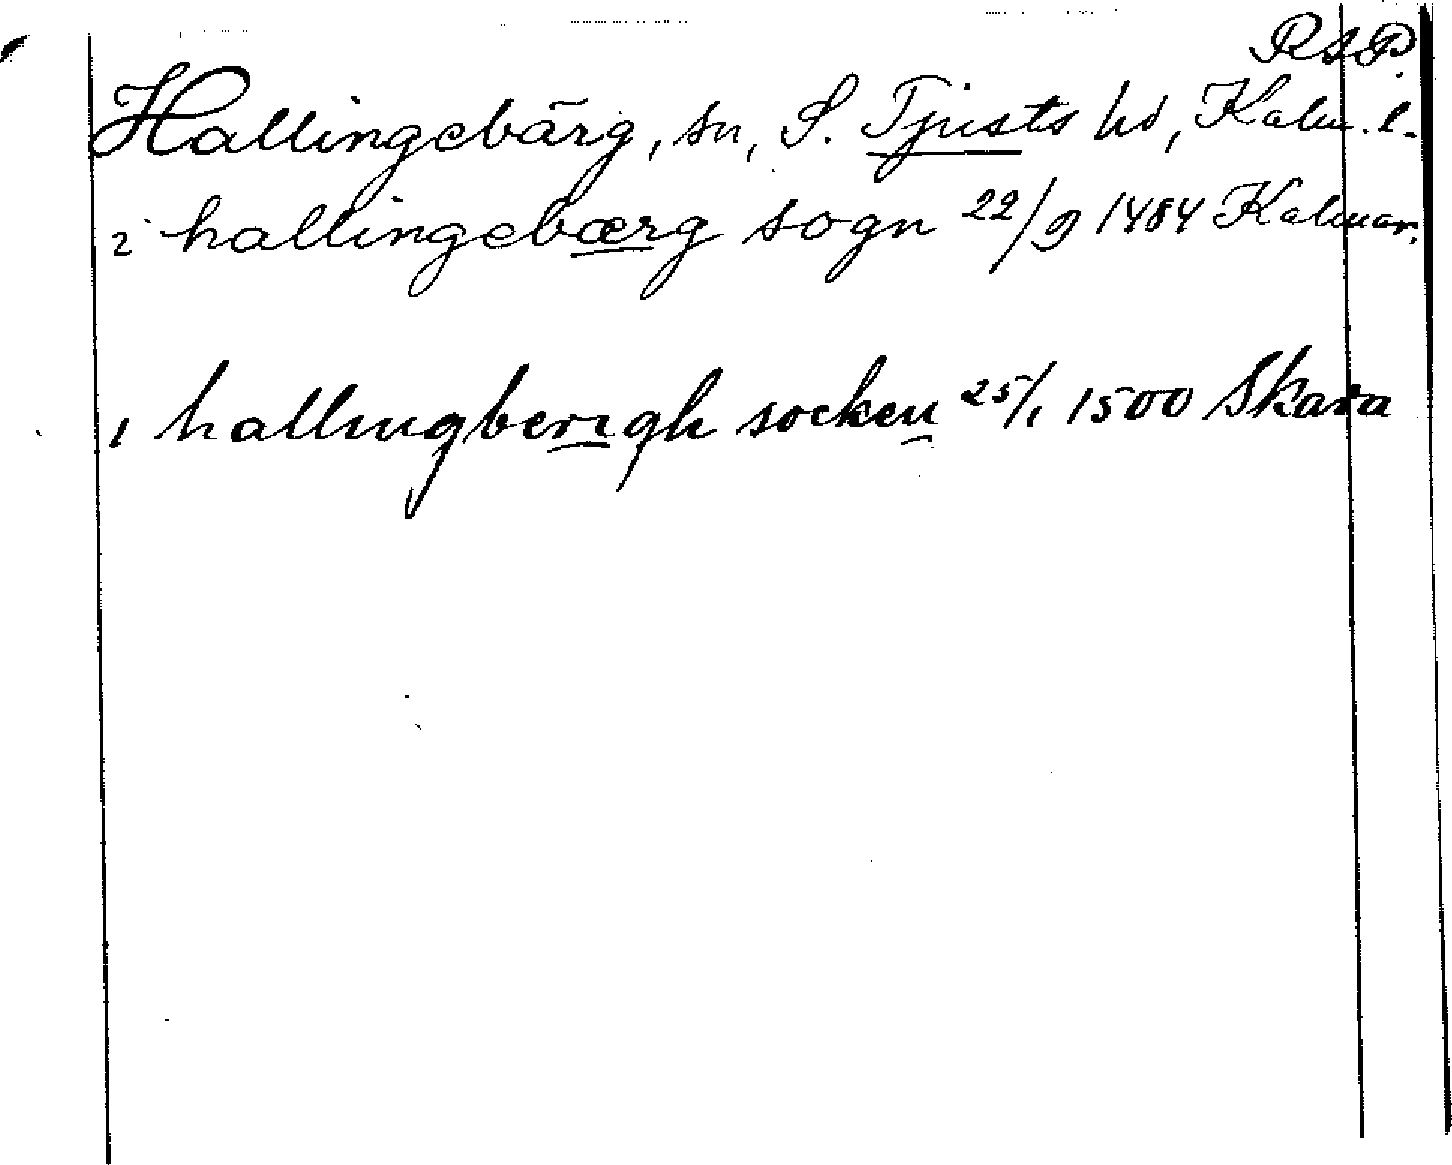 RAP.
Hallingebärg, sn, S. Tjusts hd, Kalm. l.
i hallingebærg sogn 22/9 1484 Kalmar.
i hallingberigh socken 25/1 1500 Skara